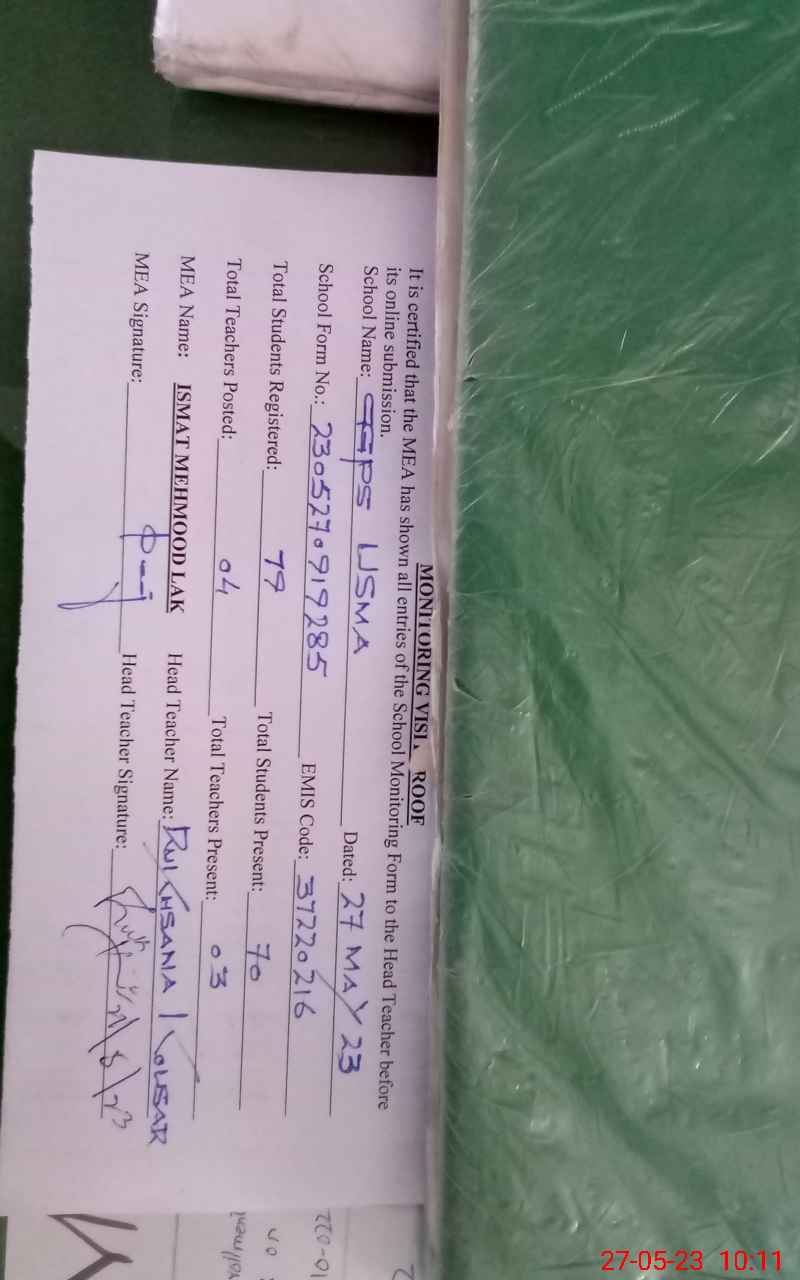 MONITORING VISI ROOF
It is certified that the MEA has shown all entries of the School Monitoring Form to the Head Teacher before
its online submission.
School Name: GGPS USMA Dated: 27 MAY 23
School Form No.: 2305270919285 EMIS Code: 37220216
Total Students Registered: 79 Total Students Present: 70
Total Teachers Posted: 04 Total Teachers Present: 03
MEA Name: ISMAT MEHMOOD LAK Head Teacher Name: RUKHSANA KOUSAR
MEA Signature: Head Teacher Signature:
27-05-23 10:11